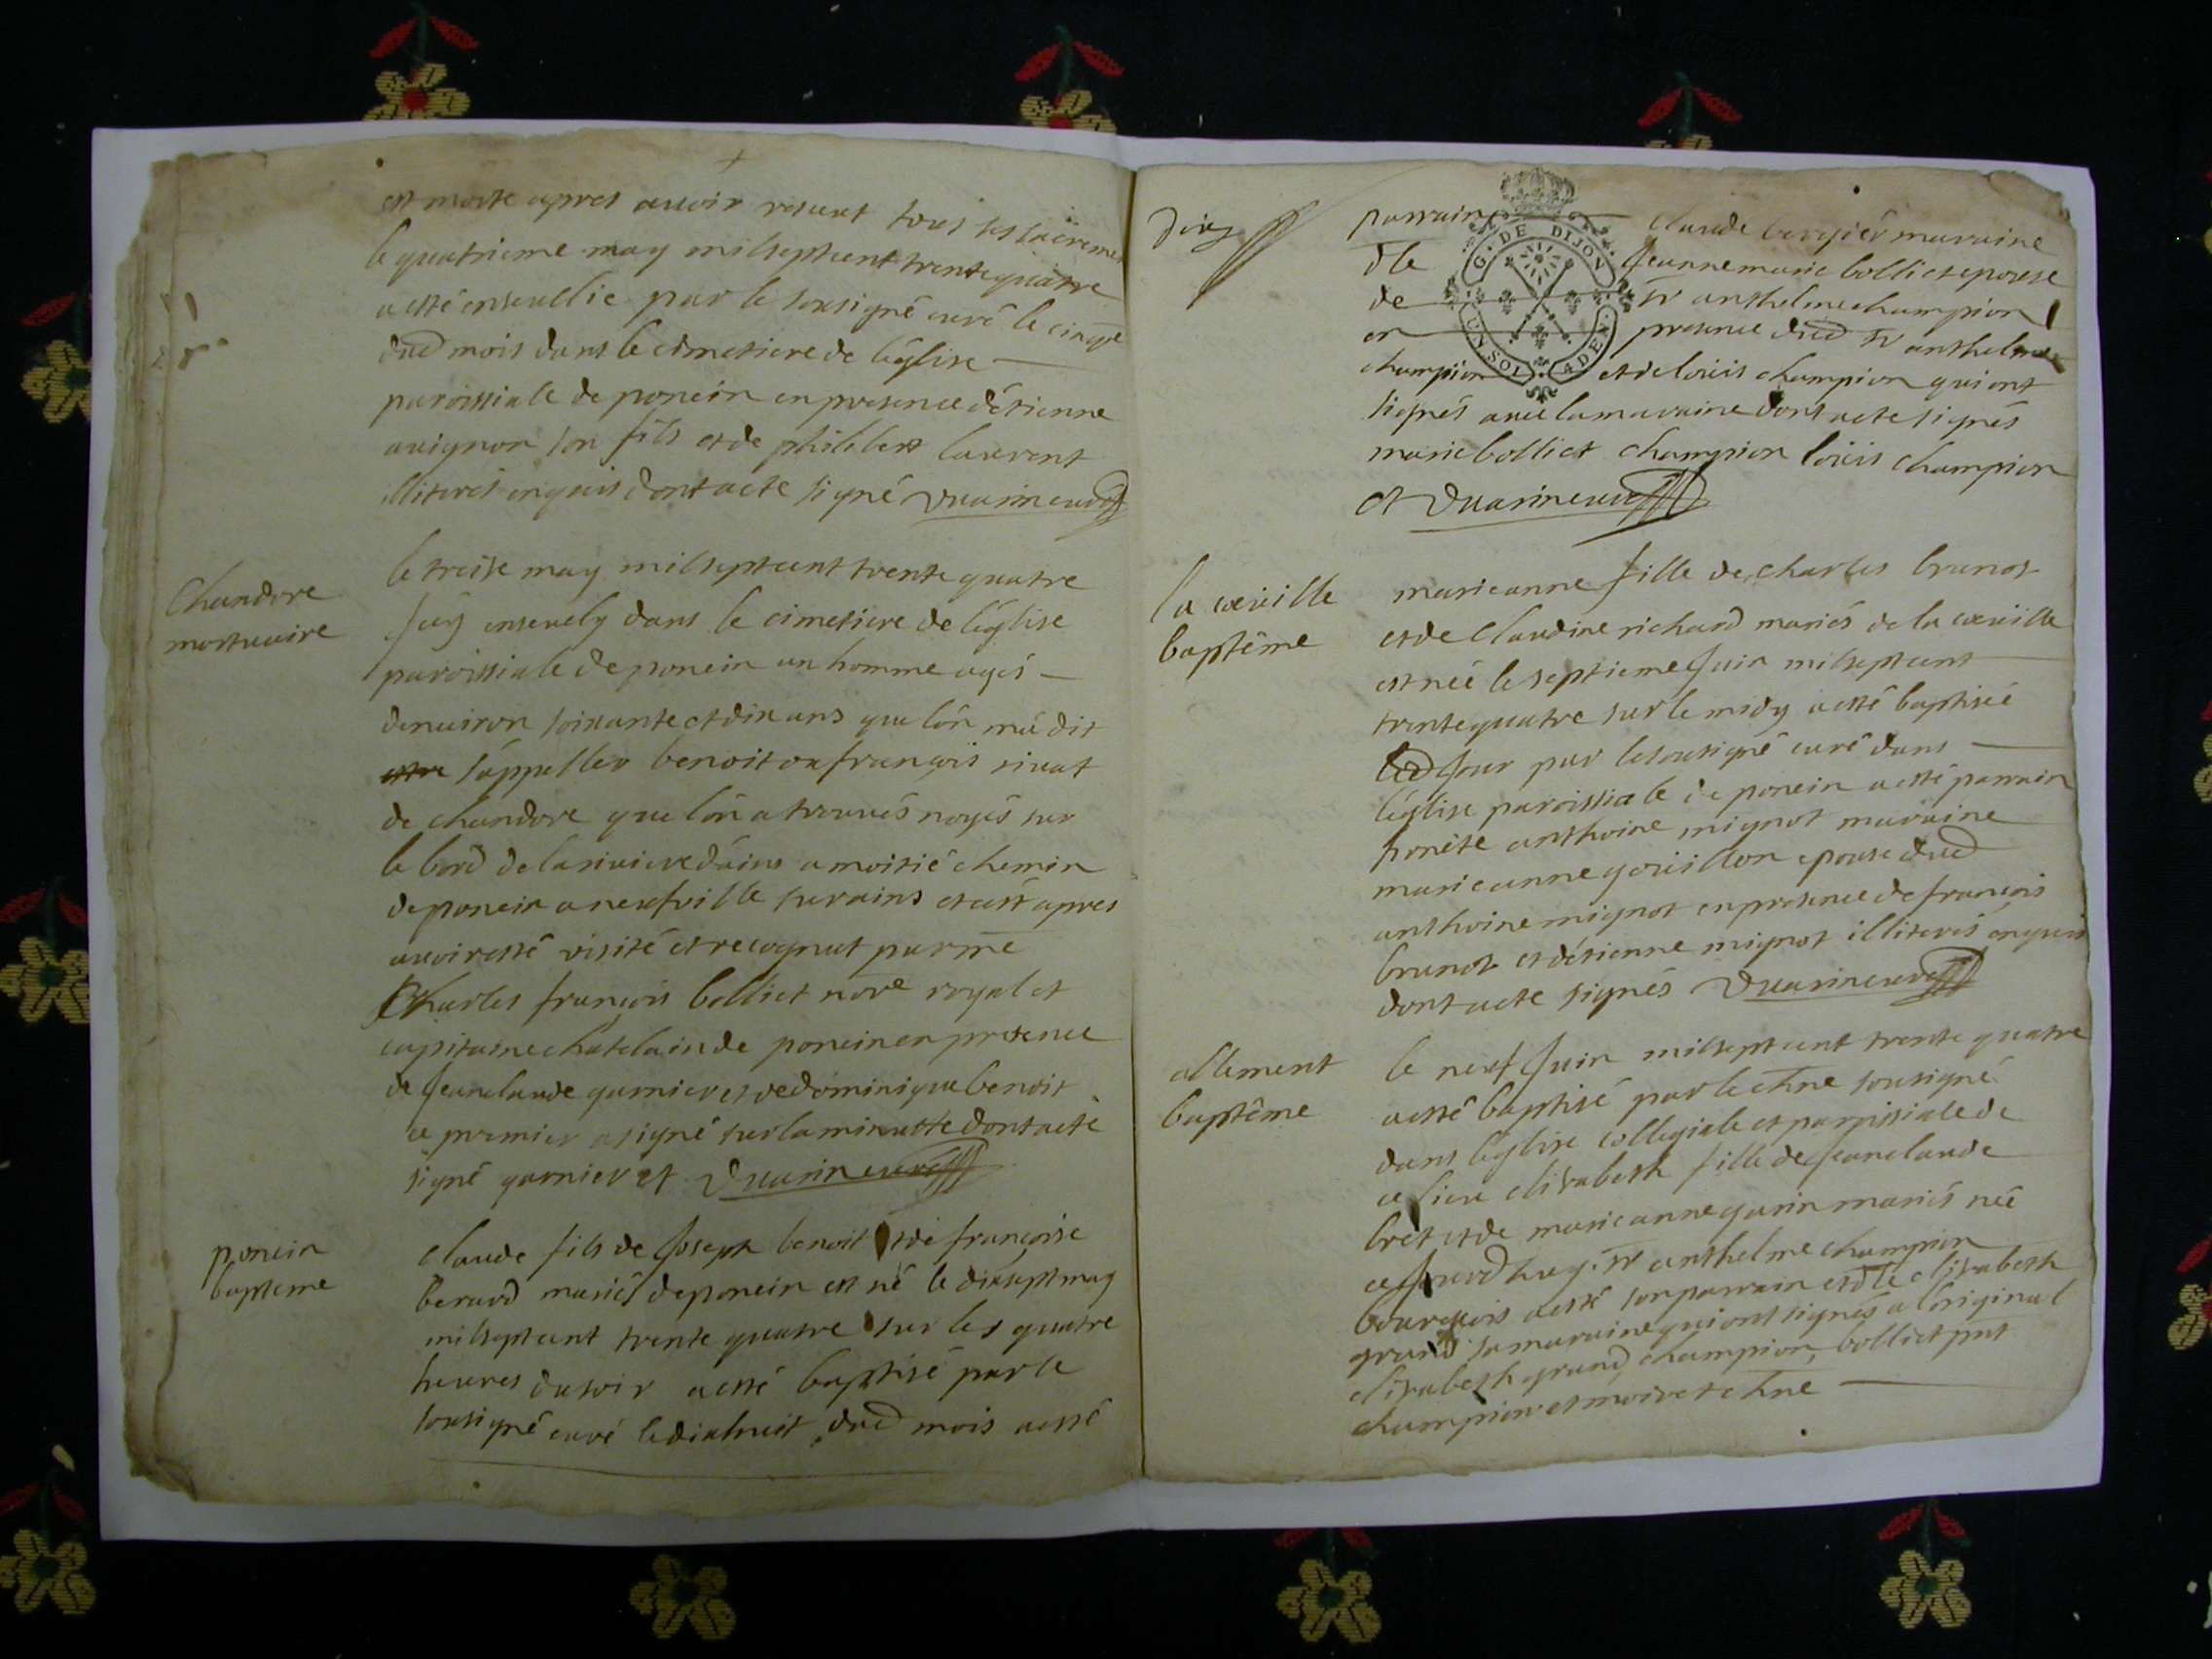 est morte apres avoir receut tous ses sacremen
le quatrieme may milseptcent trentequatre
a esté ensevellie par le sousigné curé le cinqe
dud mois dans le cimetiere de l'église
paroissialle de poncin en presence d'étienne
avignon son fils et de philibert laurent
illiterés enquis dont acte signé
Chandore
mortuaire
le treise may milseptcent trente quatre
j'ay ensevely dans le cimetiere de l'église
paroissialle de poncin un homme agés
denuiron soixante et dix ans que l'on m'a dit
s'appeller benoit ou françois rivat
de chandore que l'on a trouvés noyés sur
le bord de la riviere d'ains a moitié chemin
de poncin a neufville sur ains et c'est apres
avoir esté visité et recognut par me
Charles françois bolliet nore royal et
capitaine chatelain de poncin en presence
de Jeanclaude garnier et de dominique benoit
ce premier a signé sur la minutte dont acte
signé garnier et
poncin
bapteme
claude fils de Joseph benoit et de françoise
berard mariés de poncin est né le dixsept may
milseptcent trente quatre sur les quatre
heures du soir a esté baptisé par le
sousigné curé le dixhuit dud mois a esté
Dix
parrain claude bergier maraine
dle Jeannemarie bolliet epouse
de sr anthelme champion
en presence dud sr anthelme
champion et de loüis champion qui ont
signés avec la maraine dont acte signés
marie bolliet champion loüis champion
et
la cueille
baptême
marieanne fille de charles brunot
et de Claudine richard mariés de la cueille
est née le septieme Juin milseptcent
trentequatre sur le midy a esté baptisée
led Jour par le sousigné curé dans
l'église paroissialle de poncin a esté parrain
honête anthoine mignot maraine
marieanne goüillon epouse dud
anthoine mignot en presence de françois
brunot et d'étienne mignot illiterés enquis
dont acte signés
allement
baptême
le neuf Juin milseptcent trente quatre
a esté baptisé par le chne sousigné
dans l'église collegiale et parrissiale de
ce lieu elisabeth fille de Jeanclaude
bret et de marieanne garin mariés née
ce Jourdhuy. sr anthelme champion
bourgeois a esté son parrain et dle elisabeth
grand sa maraine qui ont signés a l'original
elisabeth grand, champion, bolliet pnt
champion et moiret chne
G. DE DIJON